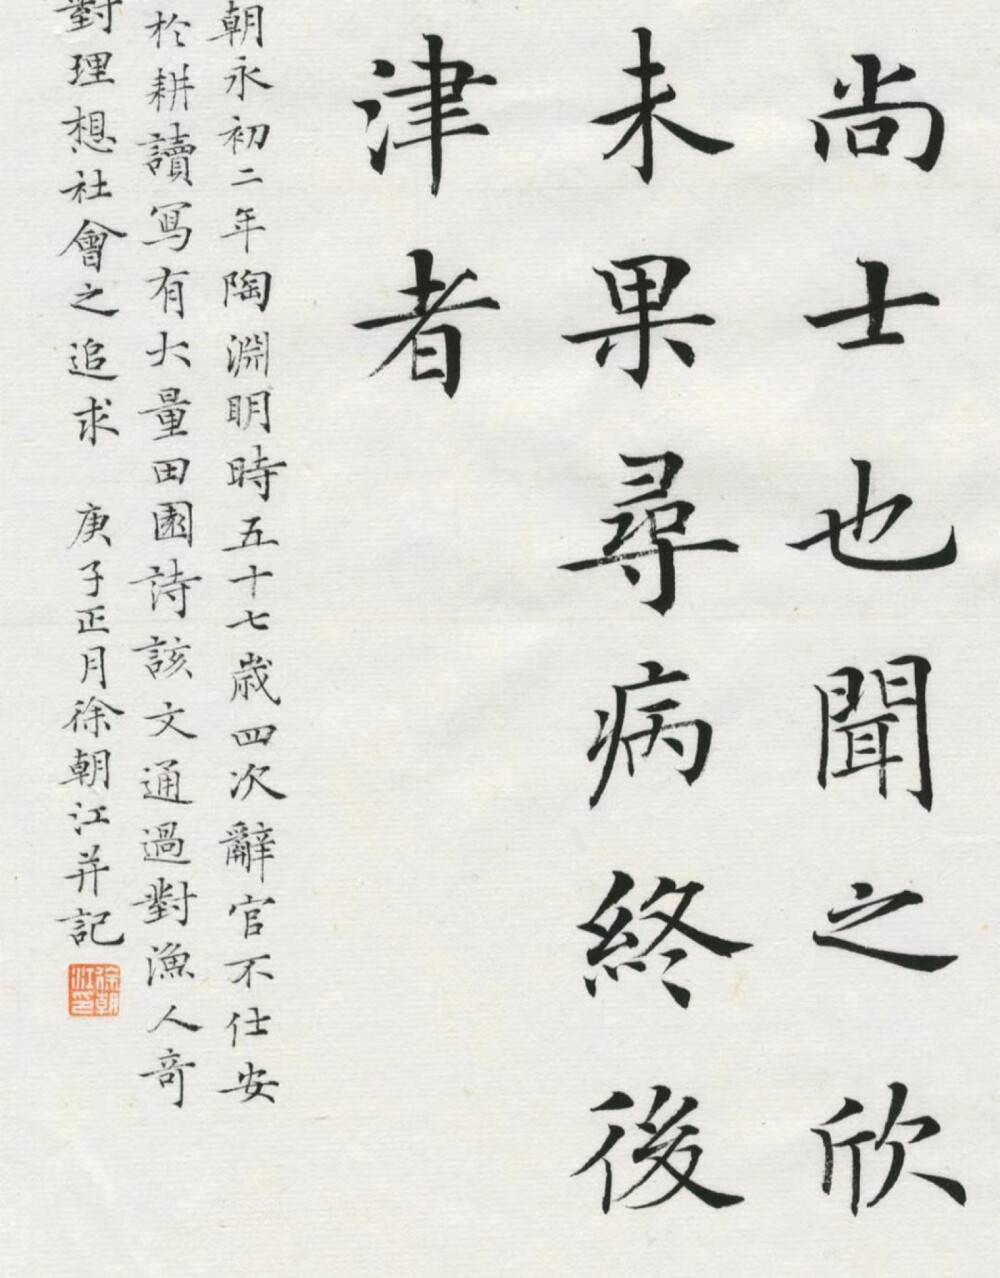 尚士也聞之欣
未果尋病終後
津者
朝永初二年陶淵明時五十七歲四次辭官不仕安
於耕讀寫有大量田園詩該文通過對漁人奇
對理想社會之追求 庚子正月徐朝江并記
徐朝江印